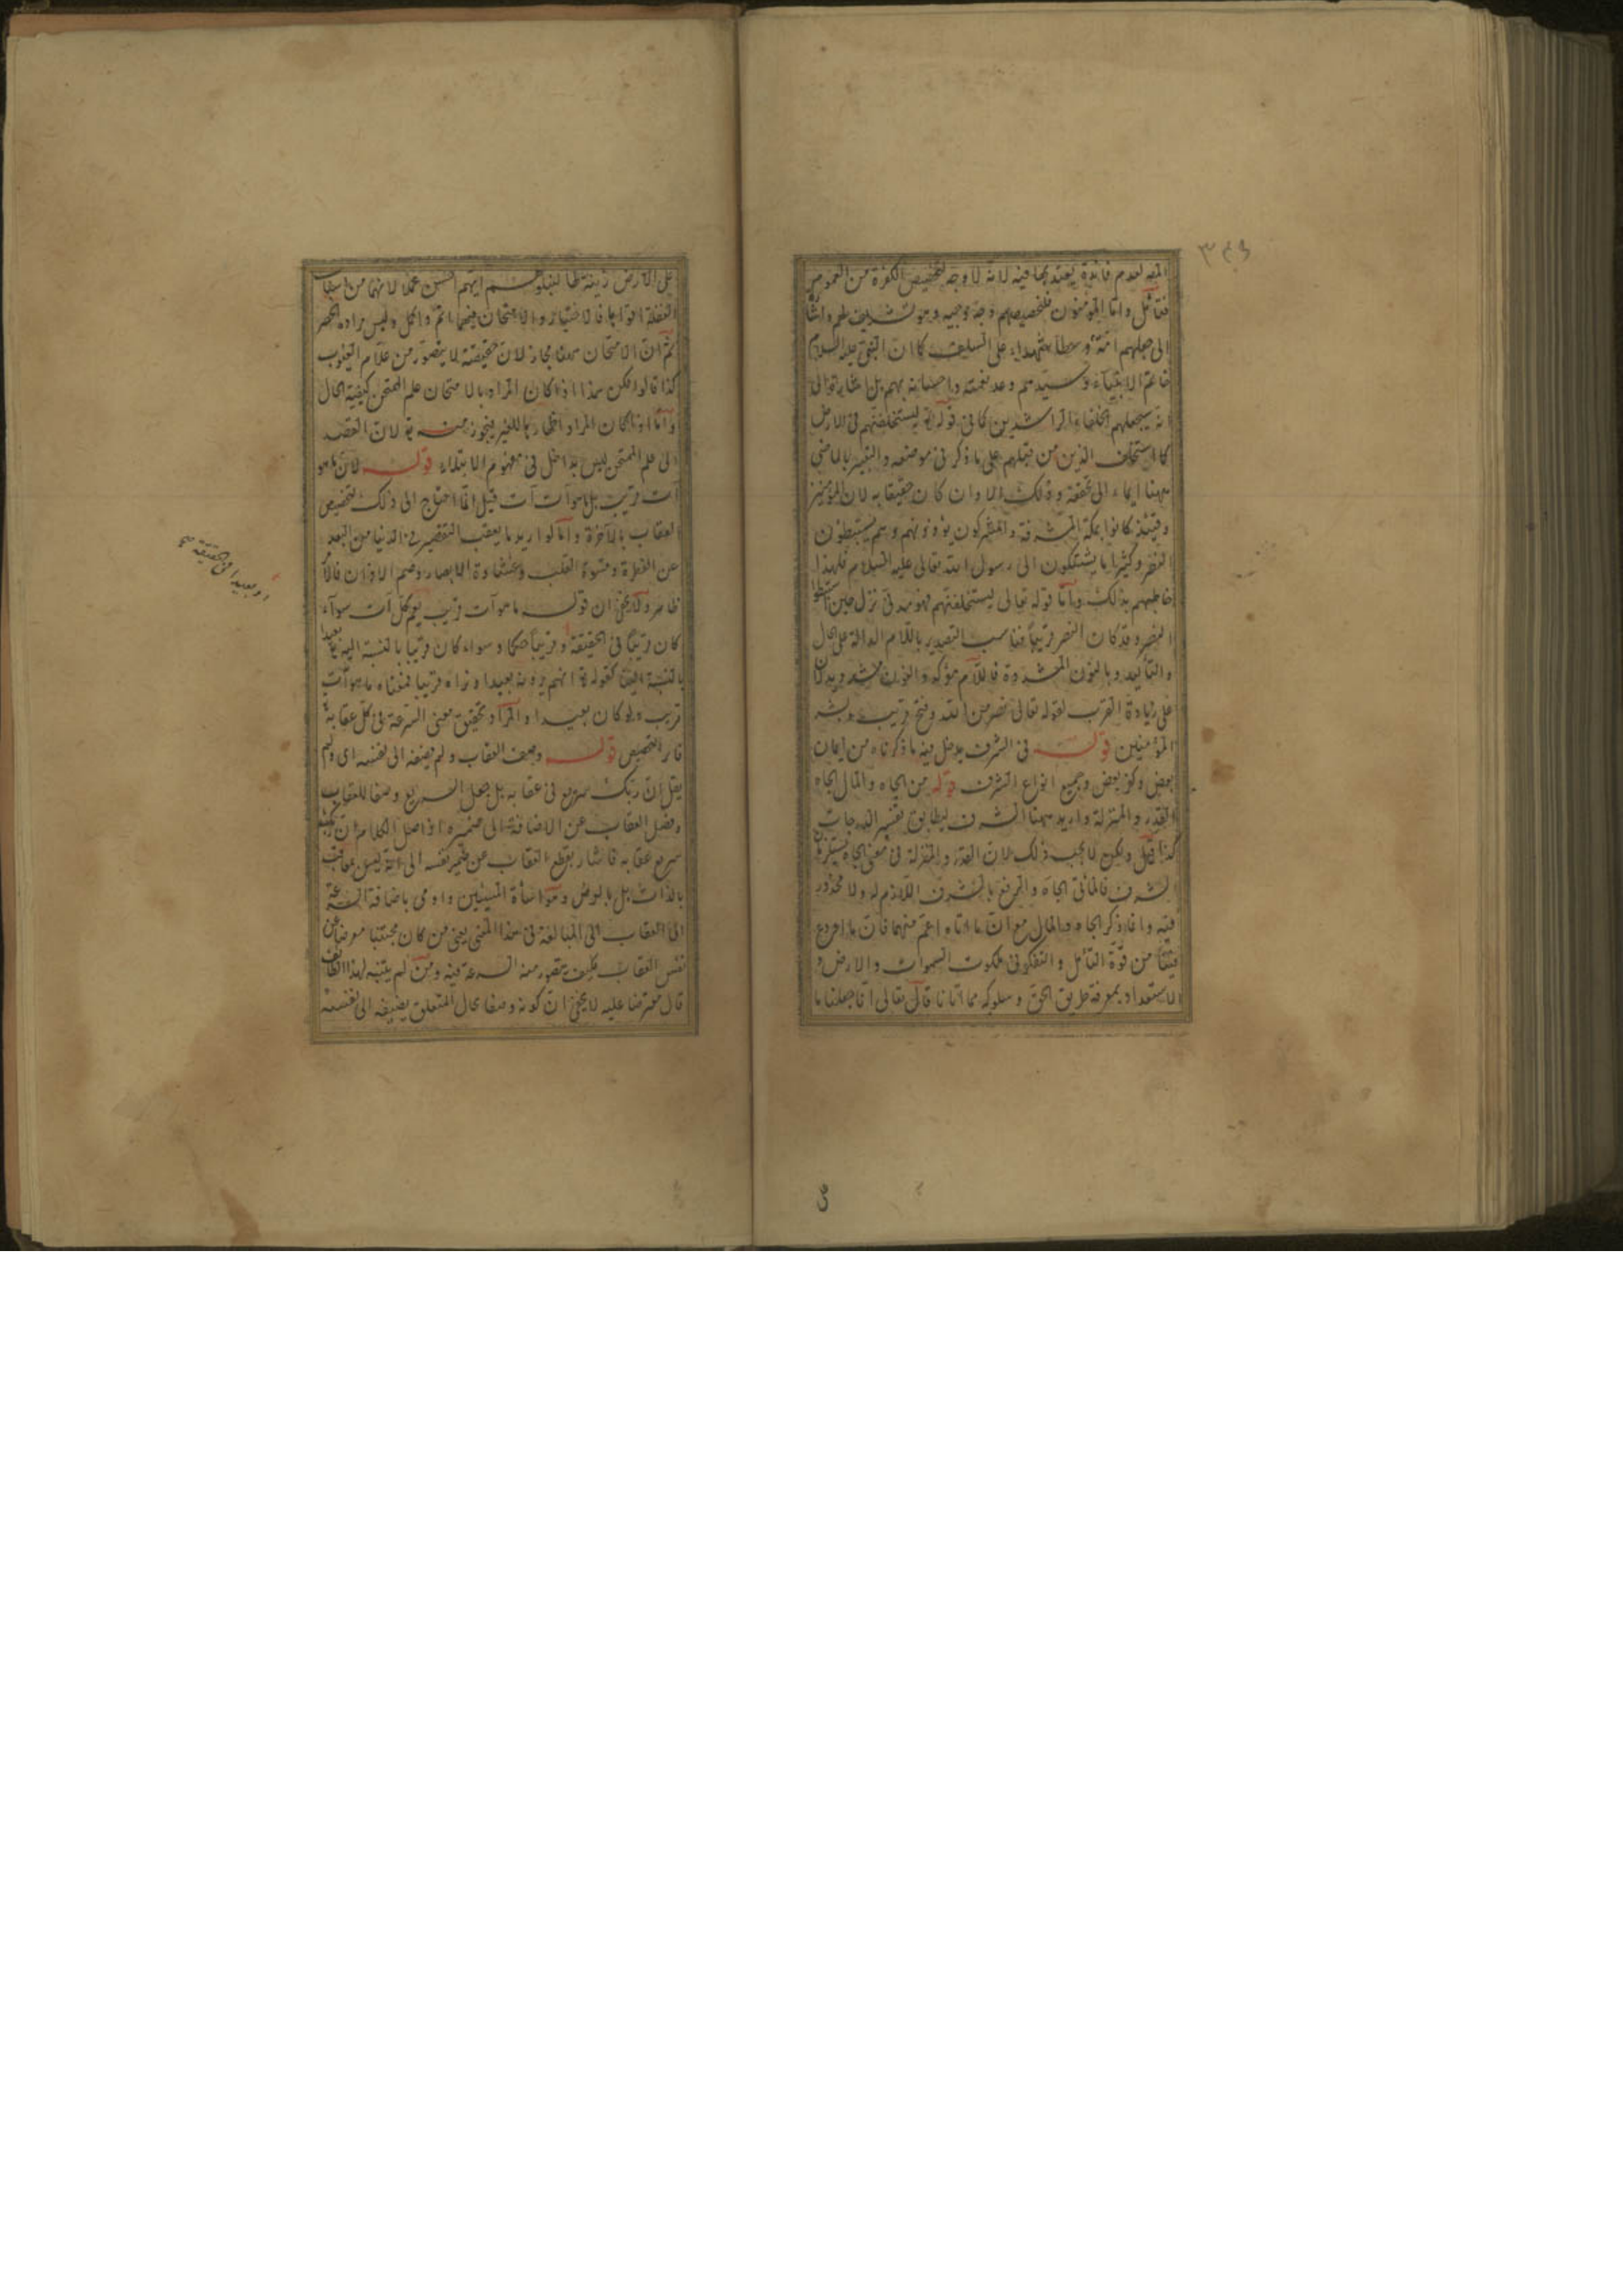 ٣٤٩
لعدم فائدة يعتد بها فيه لانه لا وجه لتخصيص الكفرة من العموم
فتأمل واما المؤمنون فلتخصيصهم وجه وجيه وهو تشريف لهم
الى جعلهم امة وسطا شهداء على السلف كما ان النبي عليه السلام
خاتم الانبياء وسيدهم وعد نعمته واحسانه بهم بل اشار تعالى
انه سيجعلهم الخلفاء الراشدين كما في قوله ليستخلفنهم في الارض
كما استخلف الذين من قبلهم على ما ذكر في موضعه والتعبير بالماضي
ههنا ايماء الى تحققه وذلك وان كان حقيقا به لان المؤمنين
وقتئذ كانوا بمكة المشرفة والمشركون يؤذونهم وهم يستبطئون
النصر وكثيرا ما يشتكون الى رسول الله تعالى عليه السلام فلهذا
خاطبهم بذلك واما قوله تعالى ليستخلفنهم فهو مدني نزل حين
النصر وقد كان النصر قريبا فناسب التصدير باللام الدالة على الحال
والتأكيد وبالنون المشددة فاللام مؤكد والنون المشددة
على زيادة القرب لقوله تعالى نصر من الله وفتح قريب وبشر
المؤمنين قوله في الشرف يدخل فيه ما ذكرناه من ايمان
بعض وكفر بعض وجميع انواع الشرف قوله من الجاه والمال الجاه
القدر والمنزلة واريد ههنا الشرف ليطابق تفسير الدرجات
كذا قيل ولكن لا يجب ذلك لان القدر والمنزلة في معنى الجاه يستلزمان
الشرف فالمآتي الجاه والرفع بالشرف اللازم له ولا محذور
فيه وانما ذكر الجاه والمال مع ان ما اتاه اعم منهما فان ما اودع
فينا من قوة التأمل والتفكر في ملكوت السموات والارض و
الاستعداد بمعرفة طريق الحق وسلوكه مما اتانا قال تعالى انا جعلنا ما
على الارض زينة لها لنبلوهم ايهم احسن عملا لانهما من اسباب
الغفلة اقواها فالاختبار والامتحان فيهما اتم واكمل وليس مراده الحصر
ثم ان الامتحان ههنا مجاز لان حقيقته لا يتصور من علام الغيوب
كذا قالوا لكن هذا اذا كان المراد بالامتحان علم الممتحن كيفية الحال
واما اذا كان المراد اظهارها للغير فيجوز منه تع لان القصد
الى علم الممتحن ليس بداخل في مفهوم الابتلاء قوله لان ما هو
آت قريب بل ما هو آت آت قيل انما احتاج الى ذلك لتخصيص
العقاب بالآخرة واما لو اريد ما يعقب التقصير في الدنيا من البعد
عن الفطرة وقسوة القلب وغشاوة الابصار وصم الاذان فالامر
ظاهر ولا يخفى ان قوله ما هو آت قريب يعم كل آت سواء
كان قريبا في الحقيقة او قريبا حكما وسواء كان قريبا بالنسبة الينا او بعيدا
بالنسبة الينا كقوله تع انهم يرونه بعيدا ونراه قريبا فمعناه ما هو آت
قريب ولو كان بعيدا والمراد تحقيق معنى السرعة في كل عقابه
قوله وصف العقاب ولم يضفه الى نفسه اى ولم
يقل ان ربك سريع في عقابه بل جعل السريع وصفا للعقاب
وفصل العقاب عن الاضافة الى ضميره اذ اصل الكلام ان ربك
سريع عقابه فاشار بقطع العقاب عن ضمير نفسه الى انه ليس يعاقب
بالذات بل بالعرض
الى العقاب الى المبالغة في هذا المعنى يعنى من كان مجتنبا معرضا عن
نفس العقاب فكيف يتصور منه السرعة فيه ومن لم يتنبه لهذا
قال معترضا عليه لا يخفى ان كونه وصفا بحال المتعلق يضيفه الى نفسه
او بعيدا في الحقيقة صح